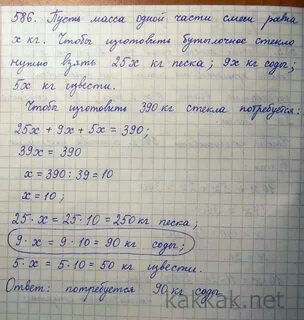 586. Пусть масса одной части смеси равна
х кг. Чтобы изготовить бутылочное стекло
нужно взять 25х кг песка; 9х кг соды;
5х кг извести.
Чтобы изготовить 390 кг стекла потребуется:
25х + 9х + 5х = 390;
39х = 390
х = 390 : 39 = 10
х = 10;
25·х = 25·10 = 250 кг песка;
9·х = 9·10 = 90 кг соды;
5·х = 5·10 = 50 кг извести.
Ответ: потребуется 90 кг соды
kakkak.net